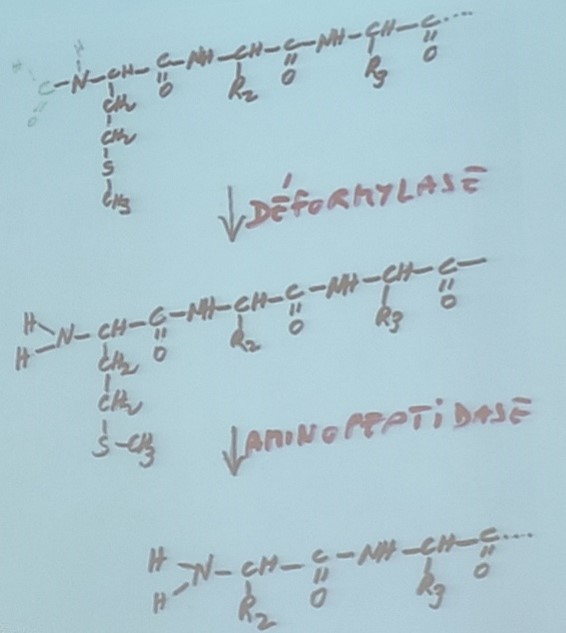 H H
C-N-CH-C-NH-CH-C-NH-CH-C....
O CH₂ O R₂ O R₃ O
CH₂
S
CH₃
↓ DÉFORMYLASE
H
H N-CH-C-NH-CH-C-NH-CH-C-
CH₂ O R₂ O R₃ O
CH₂
S-CH₃
↓ AMINOPEPTIDASE
H
H N-CH-C-NH-CH-C....
R₂ O R₃ O